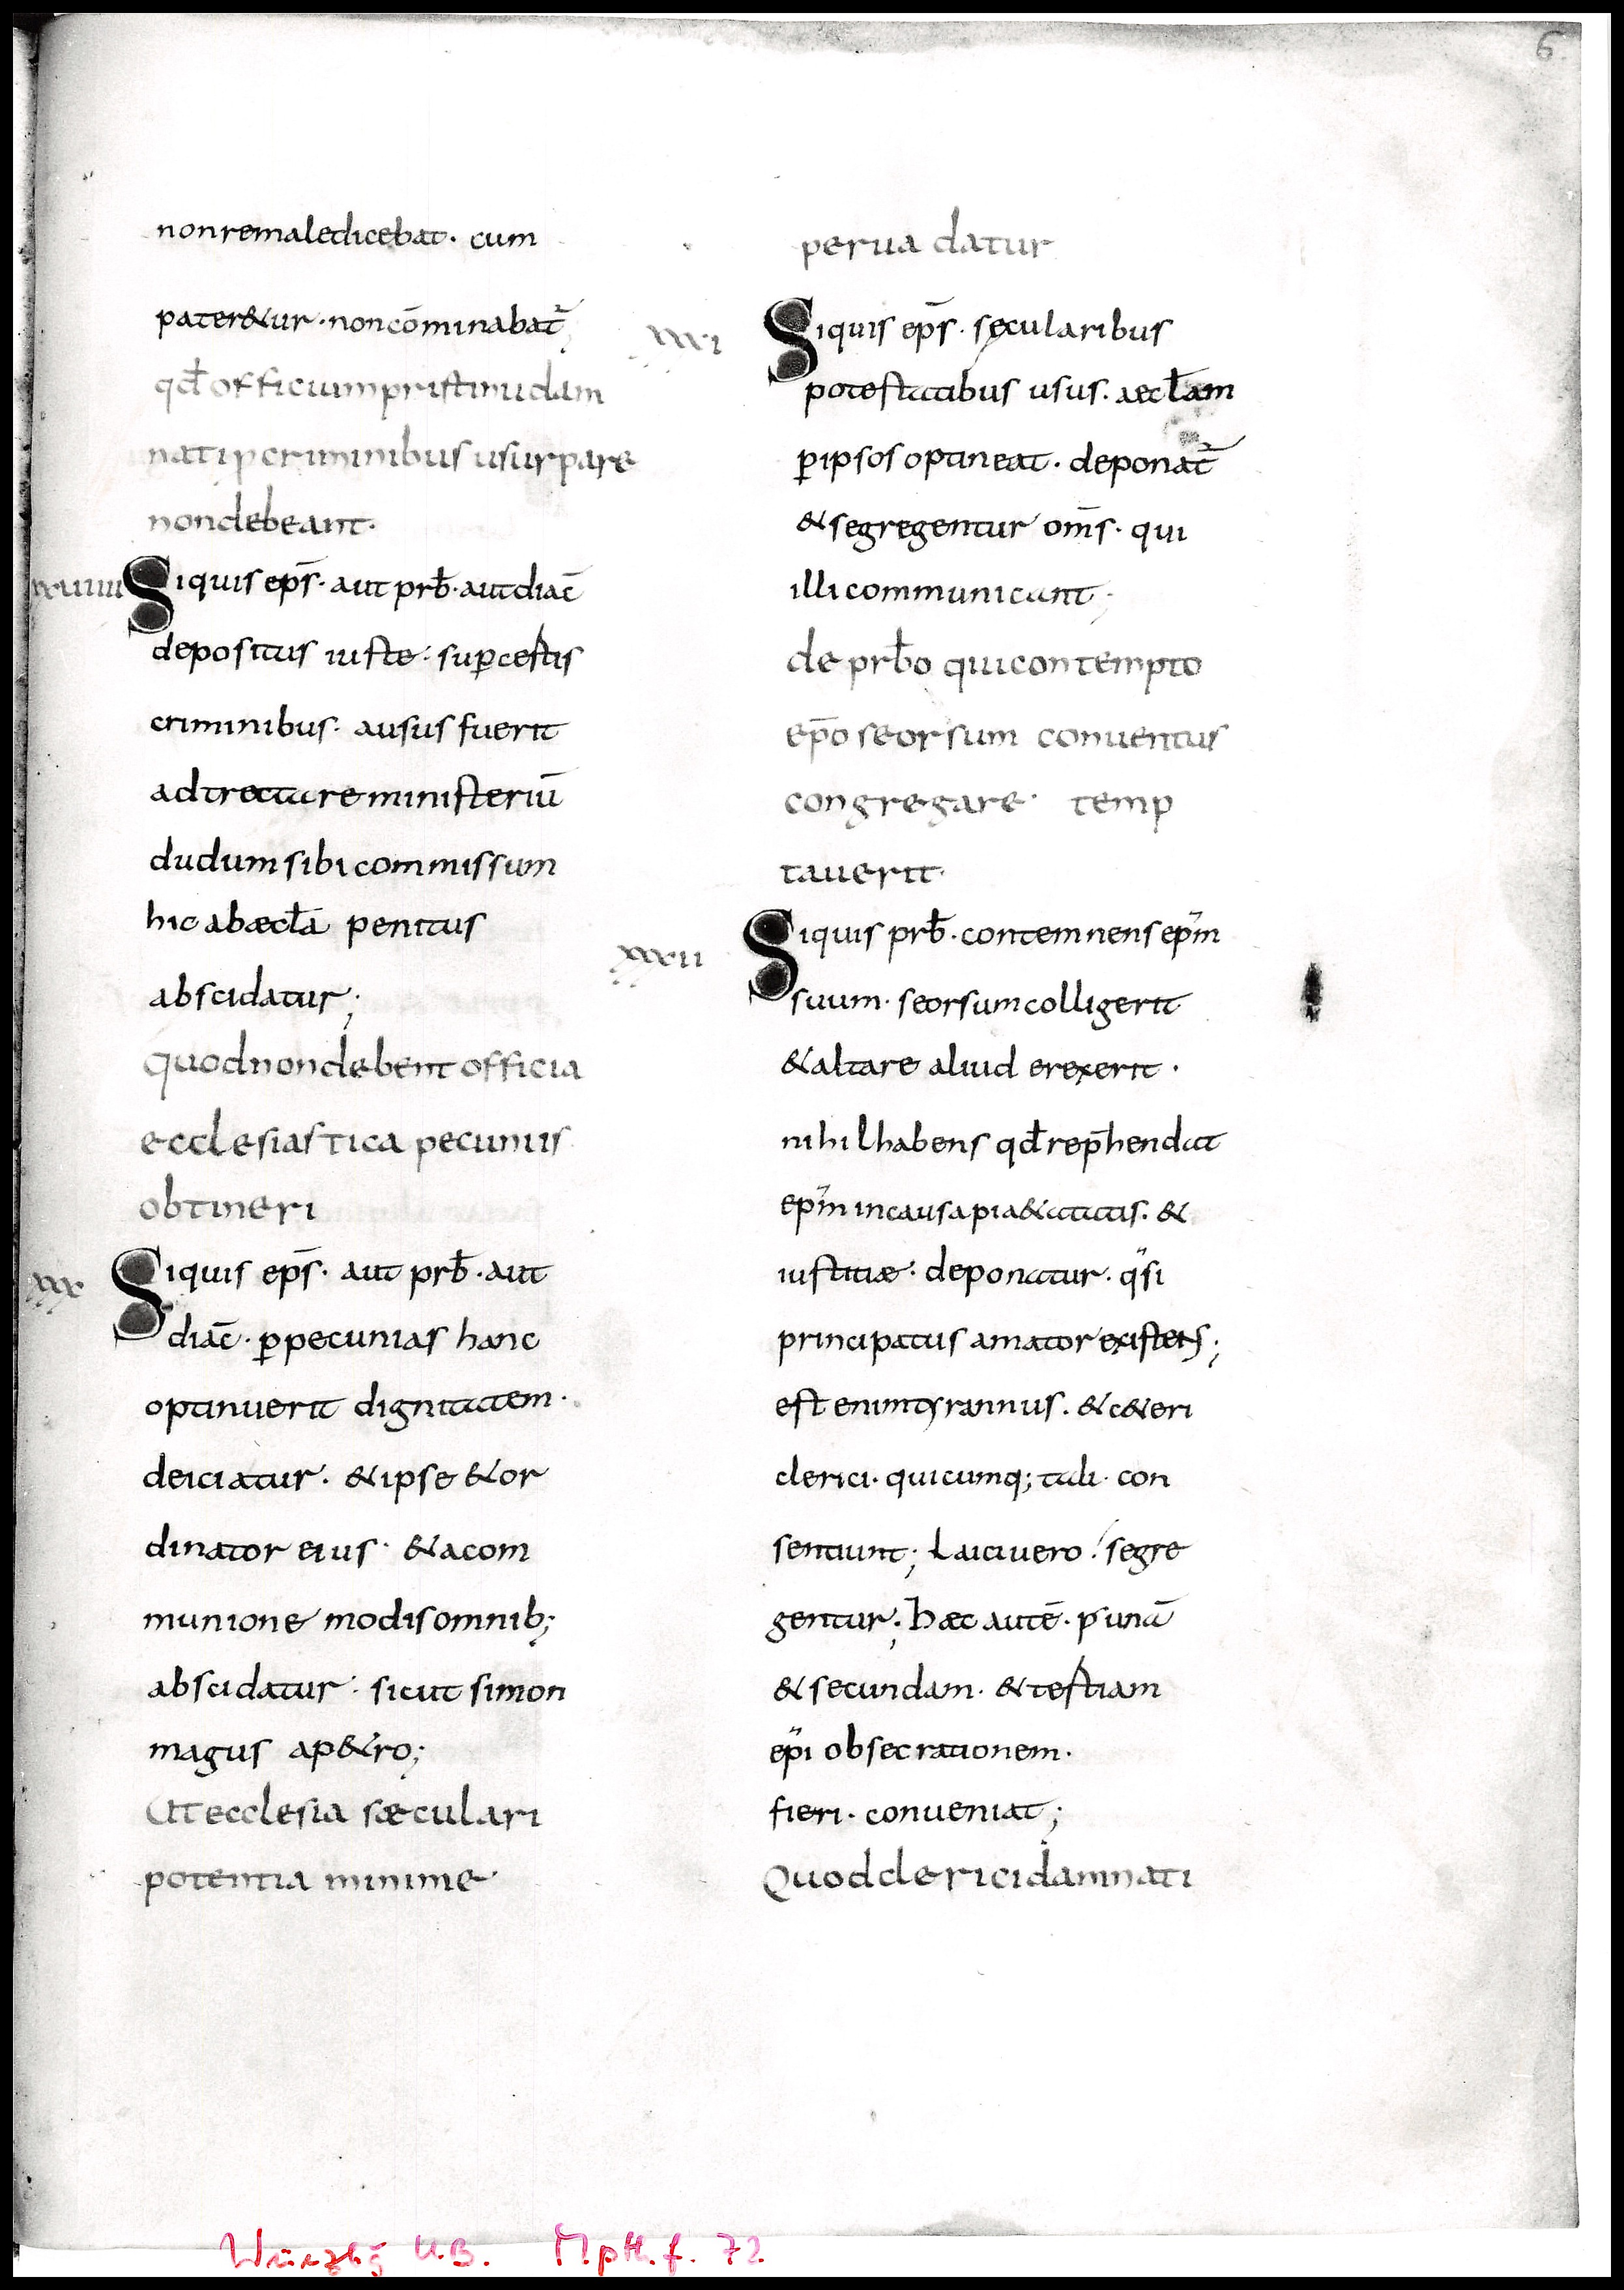 6
non remaledicebat · cum
pater&ur · non cōminabat̄;
qđ officium pristinu dam
nati p criminibus usurpare
non debeant ·
xxuiiii Siquis ep̄s · aut prb̄ · aut diac̄
depositus iuste · sup̱ certis
criminibus · ausus fuerit
adtrectare ministeriū
dudum sibi commissum
hic ab æcl̄a penitus
abscidatur;
quod non debent officia
ecclesiastica pecuniis
obtineri
xxx Siquis ep̄s · aut prb̄ · aut
diac̄ · ꝑ pecunias hanc
optinuerit dignitatem ·
deiciatur · & ipse & or
dinator eius · & a com
munione modis omnib;
abscidatur · sicut simon
magus a p&ro;
Ut ecclesia sæculari
potentia minime
peruadatur
xxxi Siquis ep̄s · sęcularibus
potestatibus usus · aecl̄am
ꝑ ipsos optineat · deponat̄
& segregentur om̄s · qui
illi communicant;
de prb̄o qui contempto
ep̄o seorsum conuentus
congregare · temp
tauerit ·
xxxii Siquis prb̄ · contemnens ep̄m
suum · seorsum colligerit
& altare aliud erexerit ·
nihil habens qđ rep̄hendat
ep̄m in causa pi&atis · &
iustitiæ · deponatur · q̈si
principatus amator existens;
est enim tyrannus · & c&eri
clerici · quicumq; tali · con
sentiunt; Laici uero · segre
gentur; Hæc autē · p unā
& secundam · & tertiam
ep̄i obsecrationem ·
fieri · conueniat;
Quod clerici damnati
Würzbg U.B. M.p.th.f. 72